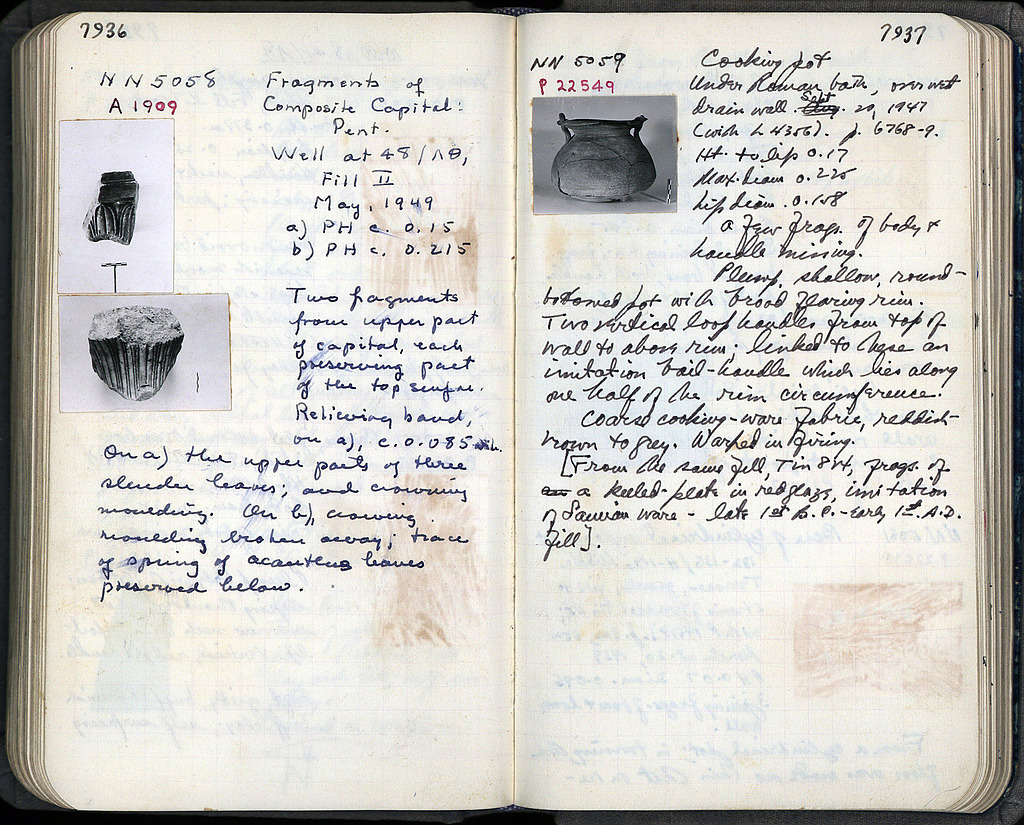 7936
NN 5058
A 1909
Fragments of
Composite Capital:
Pent.
Well at 48/ΛΘ,
Fill II
May, 1949
a) PH c. 0.15
b) PH c. 0.215
Two fragments
from upper part
of capital, each
preserving part
of the top surface.
Relieving band,
on a), c. 0.085
On a) the upper parts of three
slender leaves; and crowning
moulding. On b), crowing
moulding broken away; trace
of spring of acanthus leaves
preserved below.
7937
NN 5059
P 22549
Cooking pot
Under Roman bath, over wt
drain wall. Aug. Sept. 20, 1947
(with L 4356). p. 6768-9.
Ht. to lip 0.17
Max. diam 0.225
Lip diam. 0.158
A few frags. of body &
handle missing.
Plump, shallow, round-
bottomed pot with broad flaring rim.
Two vertical loop handles from top of
wall to above rim; linked to these an
imitation bail-handle which lies along
one half of the rim circumference.
Coarse cooking-ware fabric, reddish-
brown to grey. Warped in firing.
[From the same fill, Tin 84, frags. of
a keeled-plate in red glaze, imitation
of Samian ware - late 1st B.C.-early 1st. A.D.
fill].